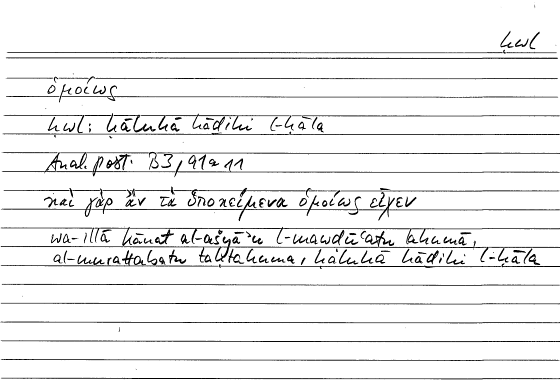 ḥwl
ὁμοίως
ḥwl: ḥāluhā hāḏihi l-ḥāla
Anal. post. B3, 91a11
καὶ γὰρ ἂν τὰ ὑποκείμενα ὁμοίως εἶχεν
wa-illā kānat al-ašyāʾu l-mawḍūʿatu lahumā,
al-murattabatu taḥtahumā, ḥāluhā hāḏihi l-ḥāla